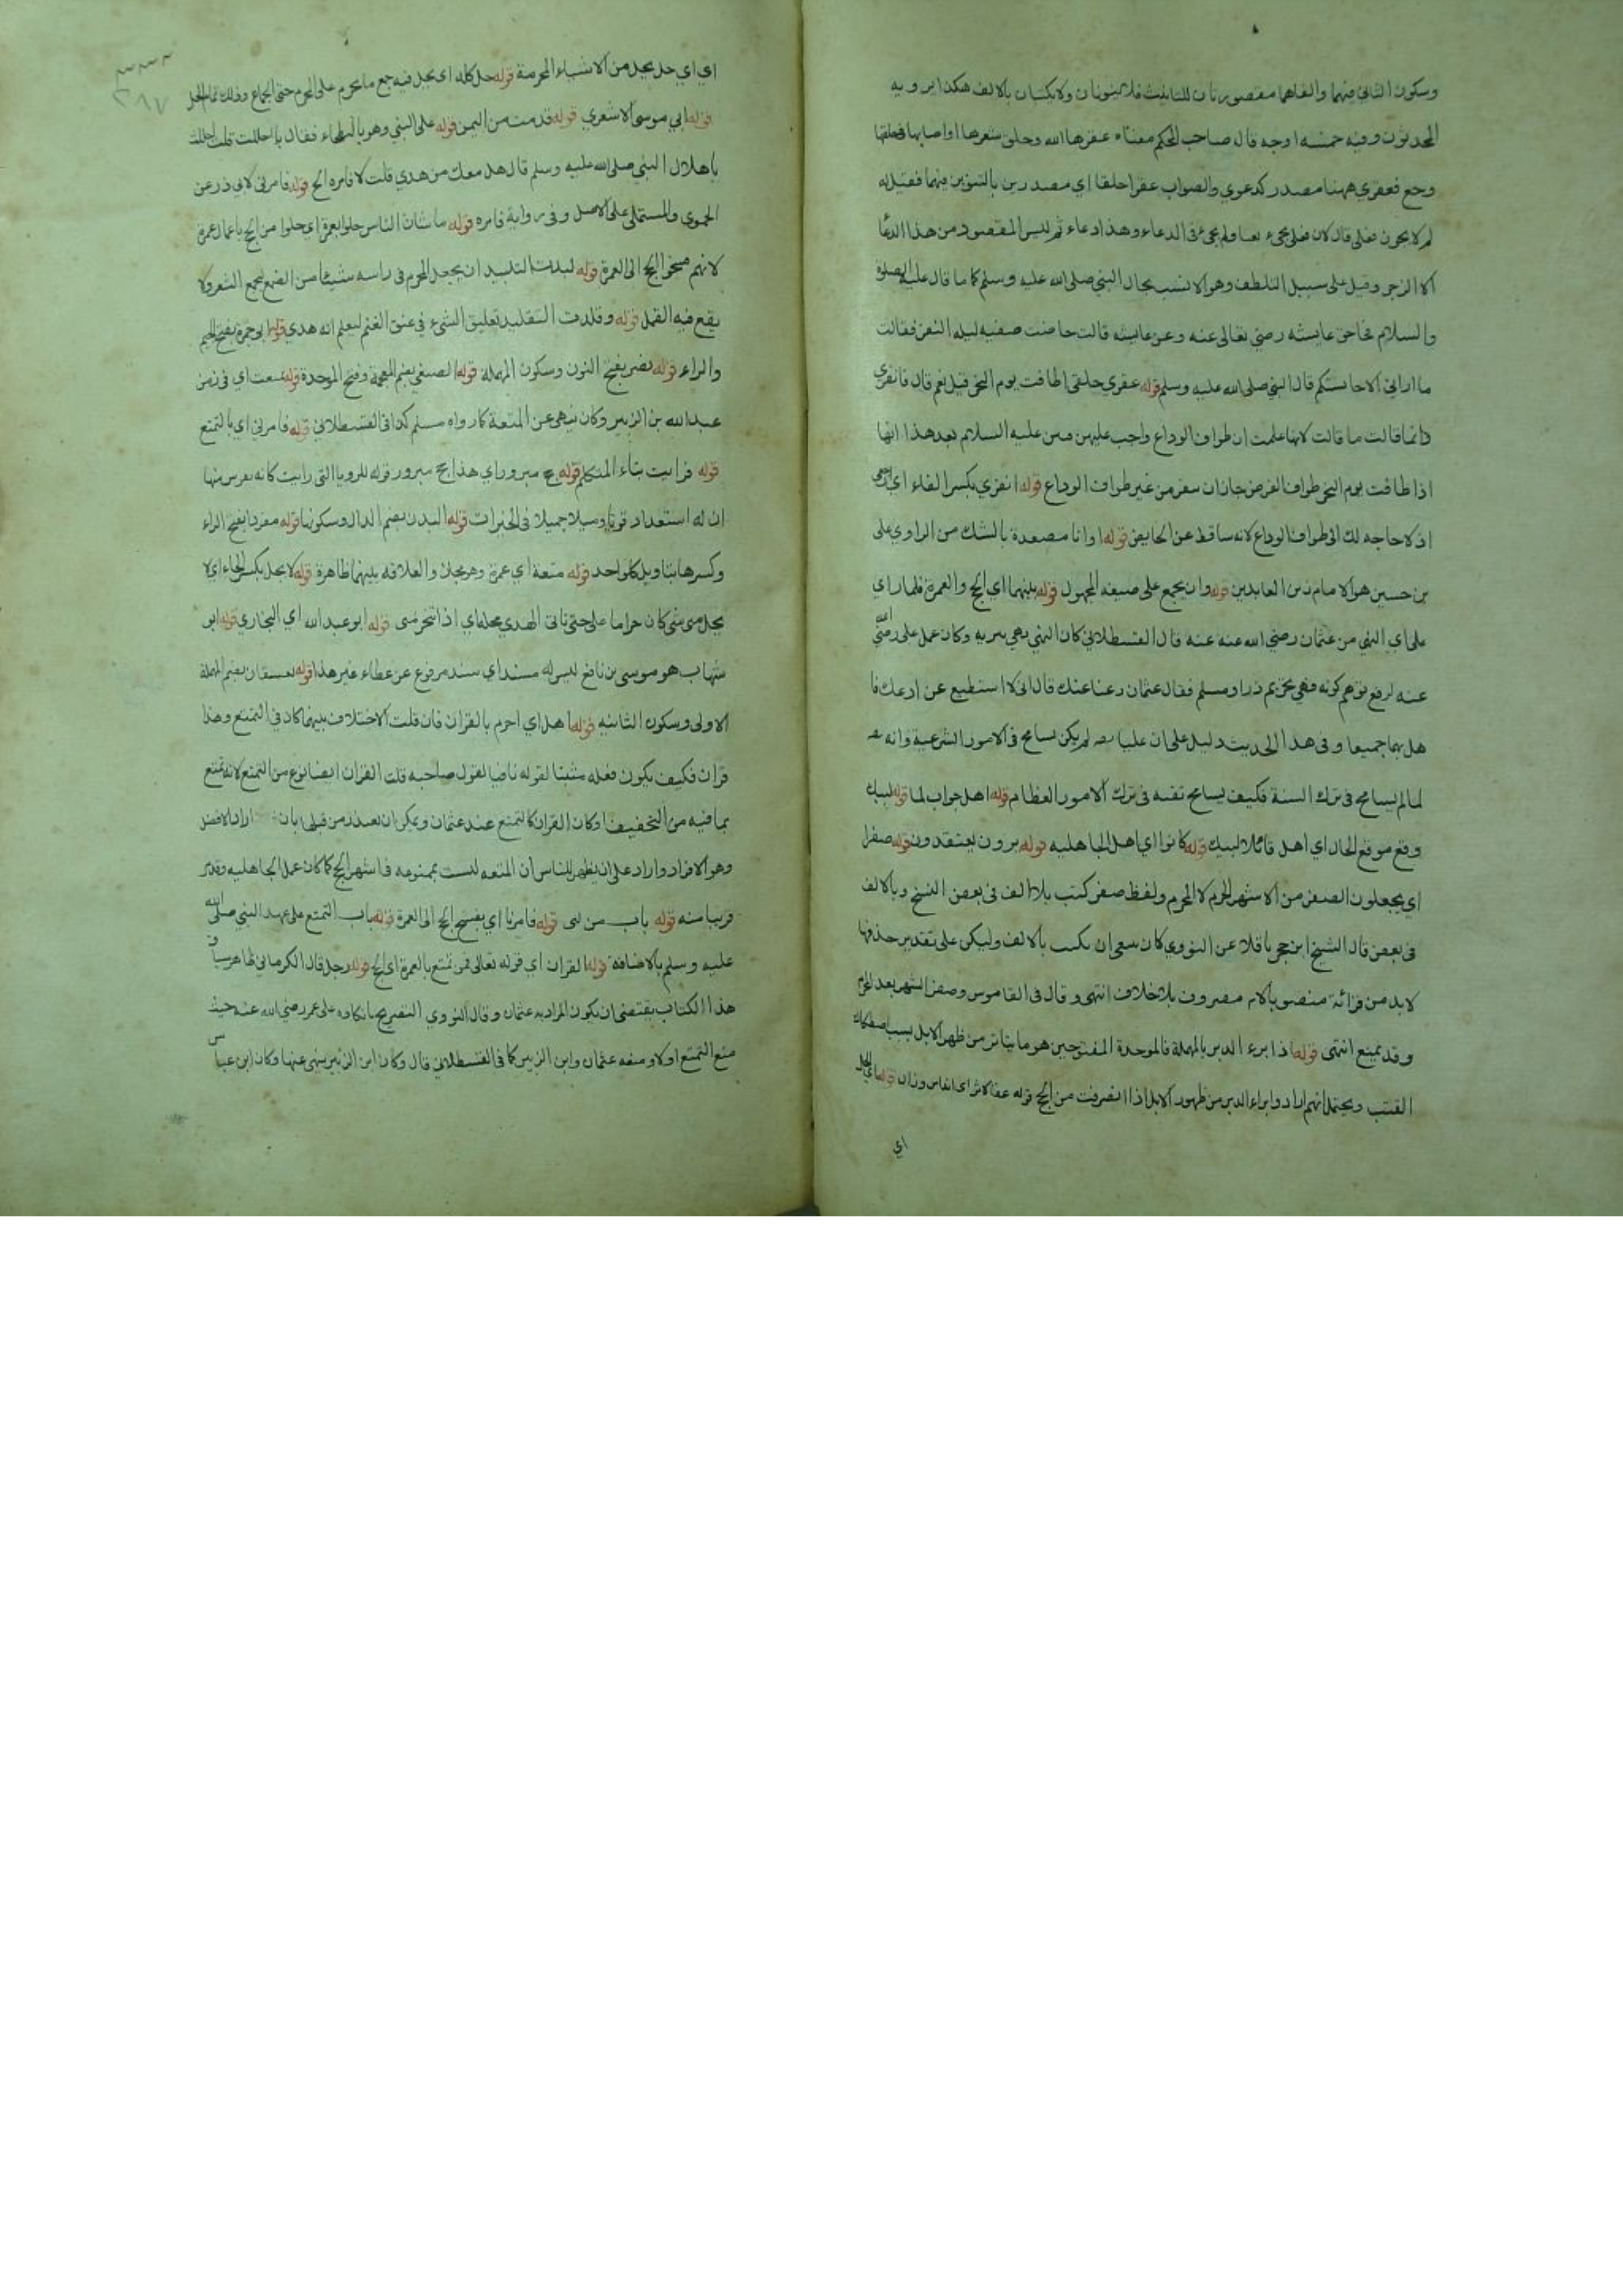 وسكون الثاني فيهما والفاهما مقصورتان للتانيث فلا ينونان ولا يكتبان بالالف هكذا يرويه
المحدثون وفيه خمسه اوجه قال صاحب المحكم معناه عقرها الله وحلق شعرها او اصابها في حلقها
وجع فعقري ههنا مصدر كدعوي والصواب عقرا حلقا اي مصدرين بالتنوين فيهما فقيل له
لم لا يجوز فعلى قال لان فعلى يجيء نعتا ولم يجئ في الدعاء وهذا دعاء ثم ليس المقصود من هذا الدعا
الا الزجر وقيل على سبيل التلطف وهو الانسب بحال النبي صلى الله عليه وسلم كما قال عليه الصلوة
والسلام في حق عايشه رضي تعالى عنه وعن عايشه قالت حاضت صفيه ليله النفر فقالت
ما اراني الا حابستكم قال النبي صلى الله عليه وسلم قوله عقري حلقي اطافت يوم النحر قيل نعم قال فانفري
دانما قالت ما قالت لانها علمت ان طواف الوداع واجب عليهن فبين عليه السلام بعد هذا انها
اذا طافت يوم النحر طواف الفرض جاز ان سفر من غير طواف الوداع قوله انفري بكسر الفاء اي
اذ لا حاجه لك الى طواف الوداع لانه ساقط عن الحايض قوله او انا مصعدة بالشك من الراوي على
بن حسين هو الامام زين العابدين قوله وان يجمع على صيغه المجهول قوله بينهما اي الحج والعمرة فلما راي
على اي النهي من عثمان رضي الله عنه عنه قال القسطلاني كان النهي نهي تنزيه وكان عمل على رضي الله
عنه لرفع توهم كونه فهي تحريم ومسلم فقال عثمان دعنا عنك قال اني لا استطيع عن ادعك فا
هل بهما جميعا وفي هذا الحديث دليل على ان عليا رضه لم يكن يسامح في الامور الشرعية وانه
لما لم يسامح في ترك السنة فكيف يسامح نفسه في ترك الامور العظام قوله اهل جواب لما قوله لبيك
وقع موقع الحال اي اهل قائلا لبيك قوله كانوا اي اهل الجاهليه قوله يرون يعتقدون قوله صفرا
اي يجعلون الصفر من الاشهر الحرم لا المحرم ولفظ صفر كتب بلا الف في بعض النسخ وبالالف
في بعض قال الشيخ ابن حجر ناقلا عن النووي كان ينبغي ان يكتب بالالف وليكن على تقدير حذفها
لابد من قرائة منصوبا لانه مصروف بلا خلاف انتهى وقال في القاموس وصفر الشهر بعد المحرم
وقد يمنع انتهى قوله اذا برء الدبر بالمهملة فالموحدة المفتوحتين هو ما يتاثر من ظهر الابل بسبب اصطكاك
القتب ويحتمل انهم ارادوا براء الدبر من ظهور الابل اذا انصرفت من الحج قوله عفا الاثر اي اندرس وزال قوله اي الحل
اي
اي اي حل يحل من الاشياء المحرمة قوله حل كله اي يحل فيه جميع ما يحرم على المحرم حتى الجماع وذلك تمام الحل
قوله ابي موسى الاشعري قوله قدمت من اليمن قوله على النبي وهو بالبطحاء فقال بما اهللت قلت اهللت
باهلال النبي صلى الله عليه وسلم قال هل معك من هدي قلت لا فامره الخ قوله فامرني لابي ذر عن
الحموي والمستملي على الاصل وفي رواية فامره قوله ما شان الناس حلوا بعمرة اي حلوا من الحج باعمال عمرة
لانهم فسخوا الحج الى العمرة قوله لبدت التلبيد ان يجعل المحرم في راسه شيئا من الصمغ ليجمع الشعر ولا
يقع فيه القمل قوله وقلدت التقليد تعليق الشيء في عنق الغنم ليعلم انه هدي قوله ابو جمرة بفتح الجيم
والراء قوله نصر بفتح النون وسكون المهملة قوله الضبعي بضم المعجمة وفتح الموحدة قوله تمتعت اي في زمن
عبد الله بن الزبير وكان ينهى عن المتعة كما رواه مسلم كذا في القسطلاني قوله فامرني اي بالتمتع
قوله فرايت بتاء المتكلم قوله حج مبرور اي هذا حج مبرور قوله للرويا التي رايت كانه تفرس منها
ان له استعداد قويا وميلا جميلا في الخيرات قوله البدن بضم الدال وسكونها قوله مفردا بفتح الراء
وكسرها بتاويل كل واحد قوله متعة اي عمرة وهو مجاز والعلاقه بينهما ظاهرة قوله لا يحل بكسر الحاء اي لا
يحل مني شي كان حراما على حتى تاتي الهدي محله اي اذا انحر منى قوله ابو عبد الله اي البخاري قوله ابو
شهاب هو موسى بن نافع ليس له مسند اي سند مرفوع عن عطاء غير هذا قوله بعسفان بضم المهملة
الاولى وسكون الثانيه قوله اهل اي احرم بالقران فان قلت الاختلاف بينهما كان في التمتع وهذا
قران فكيف يكون فعله مثبتا لقوله نافيا لقول صاحبه قلت القران ايضا نوع من التمتع لانه تمتع
بما فيه من التخفيف او كان القران كالتمتع عند عثمان ويمكن ان يعتذر من قبلى بان اراد الافضل
وهو الافراد واراد على ان يظهر للناس ان المتعه ليست بممنوعه في اشهر الحج كما كان عمل الجاهليه وقد مر
قريبا منه قوله باب من لبى قوله فامرنا اي بفسخ الحج الى العمرة قوله باب التمتع على عهد النبي صلى الله
عليه وسلم بالاضافة قوله القران اي قوله تعالى فمن تمتع بالعمرة اى الحج قوله رجل قال الكرماني ظاهر سياق
هذا الكتاب يقتضي ان يكون المراد به عثمان وقال النووي التصريح بانكاره على عمر رضي الله عنه حيث
منع التمتع اولا ومنعه عثمان وابن الزبير كما في القسطلاني قال وكان ابن الزبير ينهى عنها وكان ابن عباس